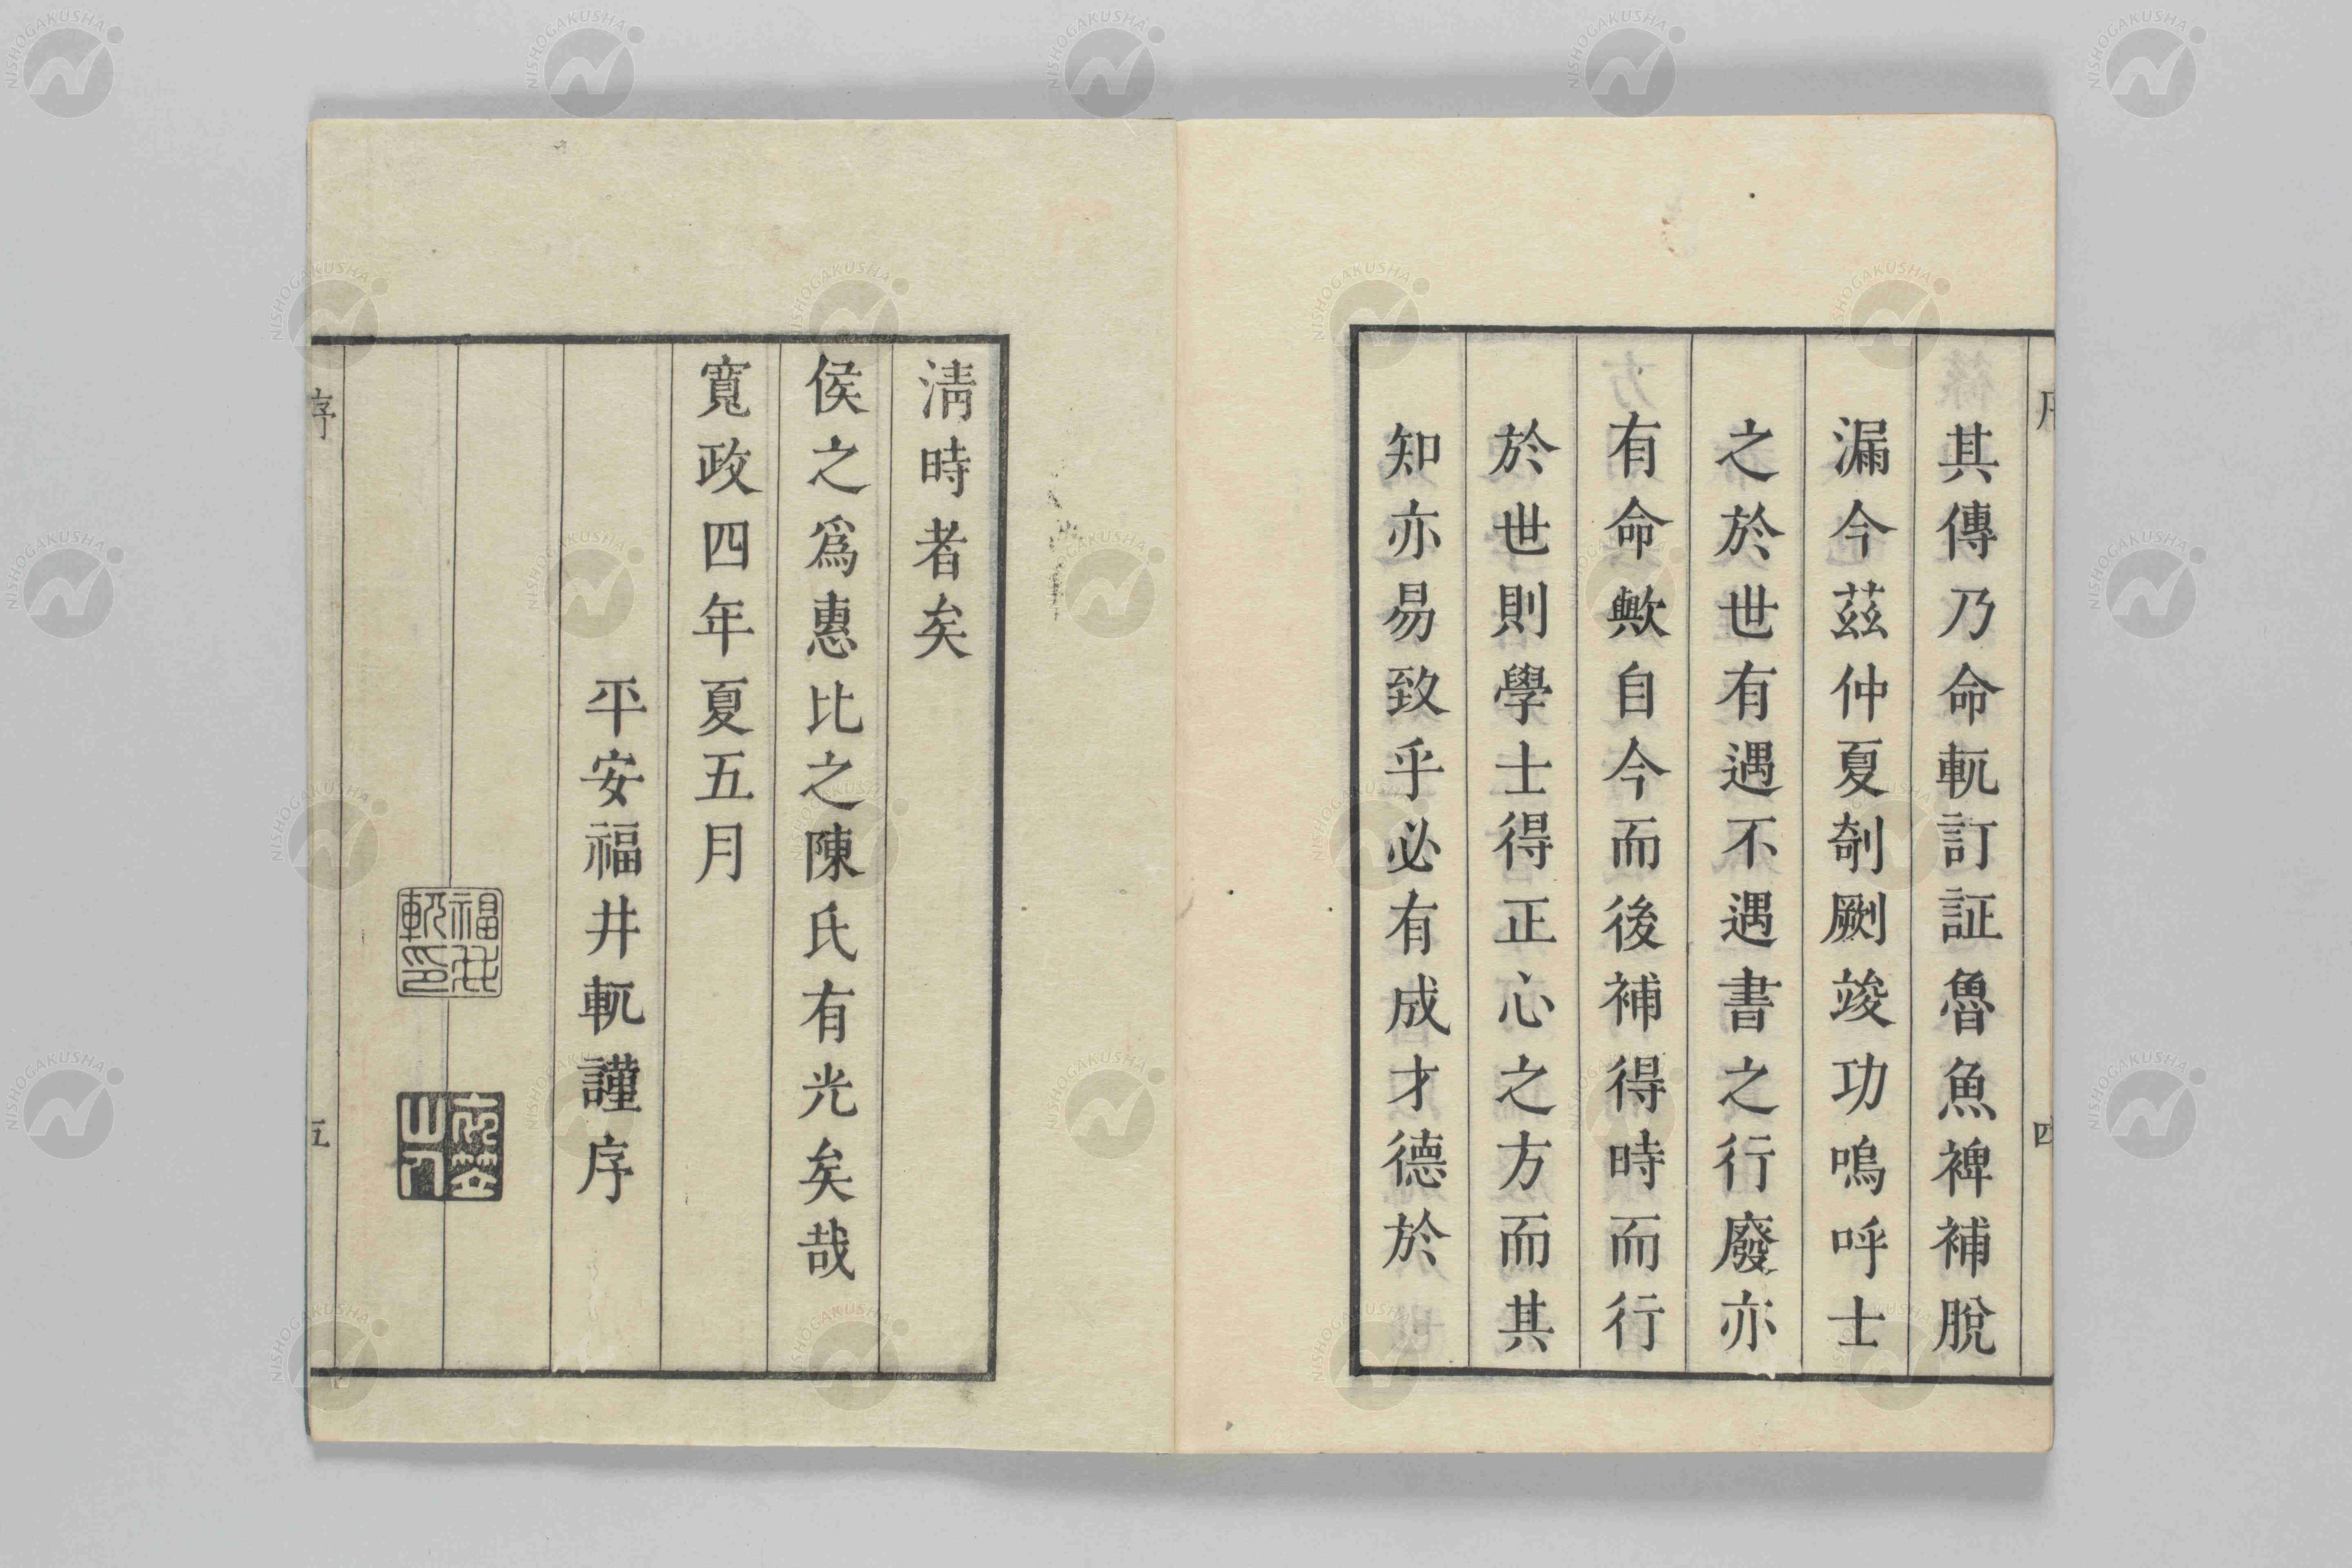 其傳乃命軏訂証魯魚裨補脫
漏今茲仲夏剞劂竣功嗚呼士
之於世有遇不遇書之行廢亦
有命歟自今而後補得時而行
於世則學士得正心之方而其
知亦易致乎必有成才德於
清時者矣
侯之爲惠比之陳氏有光矣哉
寬政四年夏五月
平安福井軏謹序
福井
軏印
山人
序
五
四
NISHOGAKUSHA